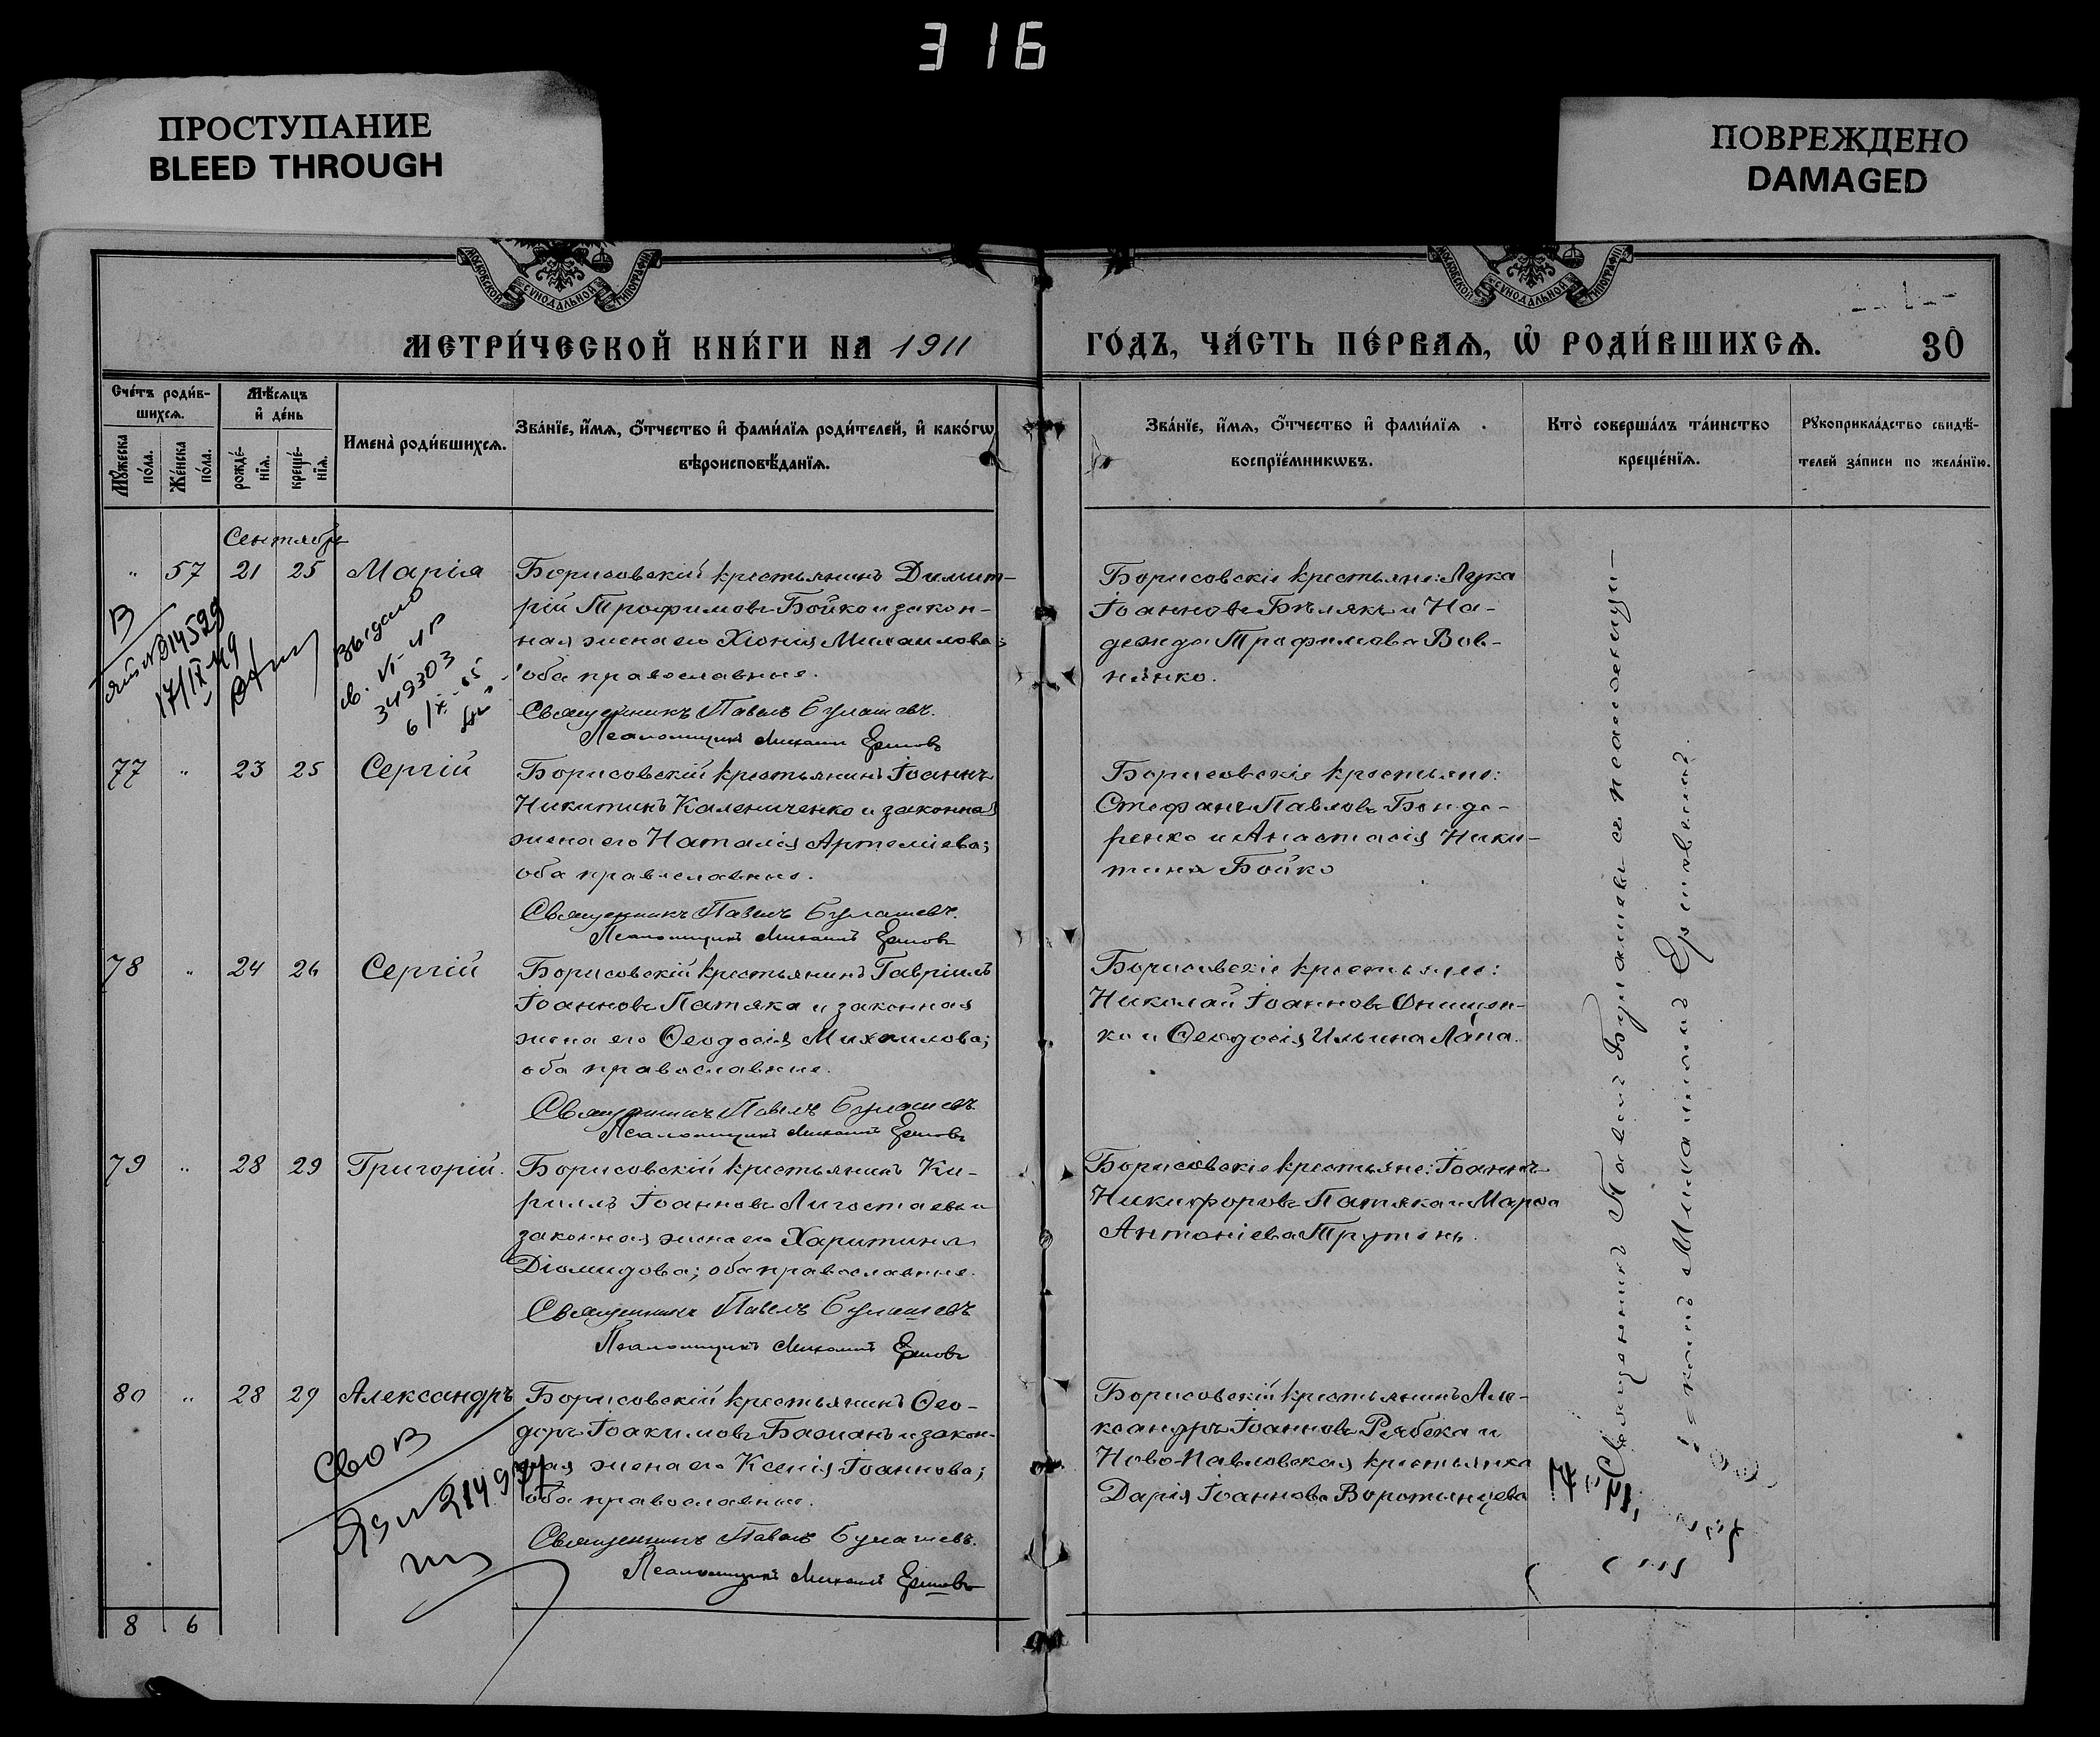 316
ПРОСТУПАНИЕ
BLEED THROUGH
ПОВРЕЖДЕНО
DAMAGED
МОСКОВСКОЙ СѴНОДАЛЬНОЙ ТИПОГРАФІИ
МОСКОВСКОЙ СѴНОДАЛЬНОЙ ТИПОГРАФІИ
МЕТРИ́ЧЕСКОЙ КНИ́ГИ НА 1911
ГО́ДЪ, ЧА́СТЬ ПЕ́РВАѦ, Ѡ҆ РОДИ́ВШИХСѦ. 30
Сче́тъ роди́в-
шихсѧ.
Мꙋ́жеска по́ла.
Же́нска по́ла.
Мѣ́сѧцъ
и҆ де́нь
рожде́-
нїѧ.
креще́-
нїѧ.
Имена̀ роди́вшихсѧ.
Зва́нїе, и҆́мѧ, ѻ҆́тчество и҆ фами́лїѧ роди́телей, и҆ како́гѡ
вѣроисповѣ́данїѧ.
Зва́нїе, и҆́мѧ, ѻ҆́тчество и҆ фами́лїѧ
воспрїе́мникѡвъ.
Кто̀ соверша́лъ та́инство
креще́нїѧ.
Рꙋкоприкла́дство свидѣ́-
телей за́писи по жела́нїю.
Сентябрь
" 57 21 25 Марія
Борисовскій крестьянинъ Димит-
рій Трофимовъ Бойко и закон-
ная жена его Хіонія Михаилова;
оба православные.
Священникъ Павелъ Булашевъ.
Псаломщикъ Михаилъ Ершовъ
Борисовскіе крестьяне: Лука
Іоанновъ Бѣлякъ и На-
дежда Трофимова Вов-
ненко.
В
17/IX-49
Выдано
св. VI-ЛР
349303
77 " 23 25 Сергій
Борисовскій крестьянинъ Іоаннъ
Никитинъ Калениченко и законная
жена его Наталія Артеміева;
оба православные.
Священникъ Павелъ Булашевъ.
Псаломщикъ Михаилъ Ершовъ
Борисовскіе крестьяне:
Стефанъ Павловъ Бонда-
ренко и Анастасія Ники-
тина Бойко
78 " 24 26 Сергій
Борисовскій крестьянинъ Гавріилъ
Іоанновъ Патяка и законная
жена его Ѳеодосія Михаилова;
оба православные.
Священникъ Павелъ Булашевъ
Псаломщикъ Михаилъ Ершовъ
Борисовскіе крестьяне:
Николай Іоанновъ Онищен-
ко и Ѳеодосія Ильина Лапа.
79 " 28 29 Григорій.
Борисовскій крестьянинъ Ки-
риллъ Іоанновъ Лигостаевъ и
законная жена его Харитина
Діомидова; оба православные.
Священникъ Павелъ Булашевъ
Псаломщикъ Михаилъ Ершовъ
Борисовскіе крестьяне: Іоаннъ
Никифоровъ Патяка и Марѳа
Антоніева Трутень.
80 " 28 29 Александръ
Борисовскій крестьянинъ Ѳео-
доръ Іоакимовъ Басманъ и закон-
ная жена его Ксенія Іоаннова;
оба православные.
Священникъ Павелъ Булашевъ.
Псаломщикъ Михаилъ Ершовъ
Борисовскій крестьянинъ Але-
ксандръ Іоанновъ Рябека и
Ново-Павловская крестьянка
Дарія Іоаннова Воротынцева
Священникъ Павелъ Булашевъ съ псаломщи-
комъ Михаиломъ Ершовымъ.
8 6